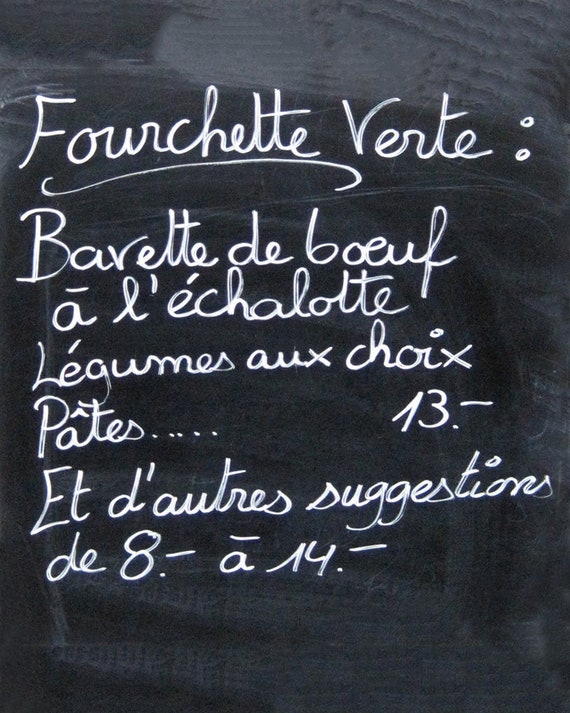 Fourchette Verte :
Bavette de bœuf
à l'échalotte
Légumes aux choix
Pâtes..... 13.-
Et d'autres suggestions
de 8.- à 14.-